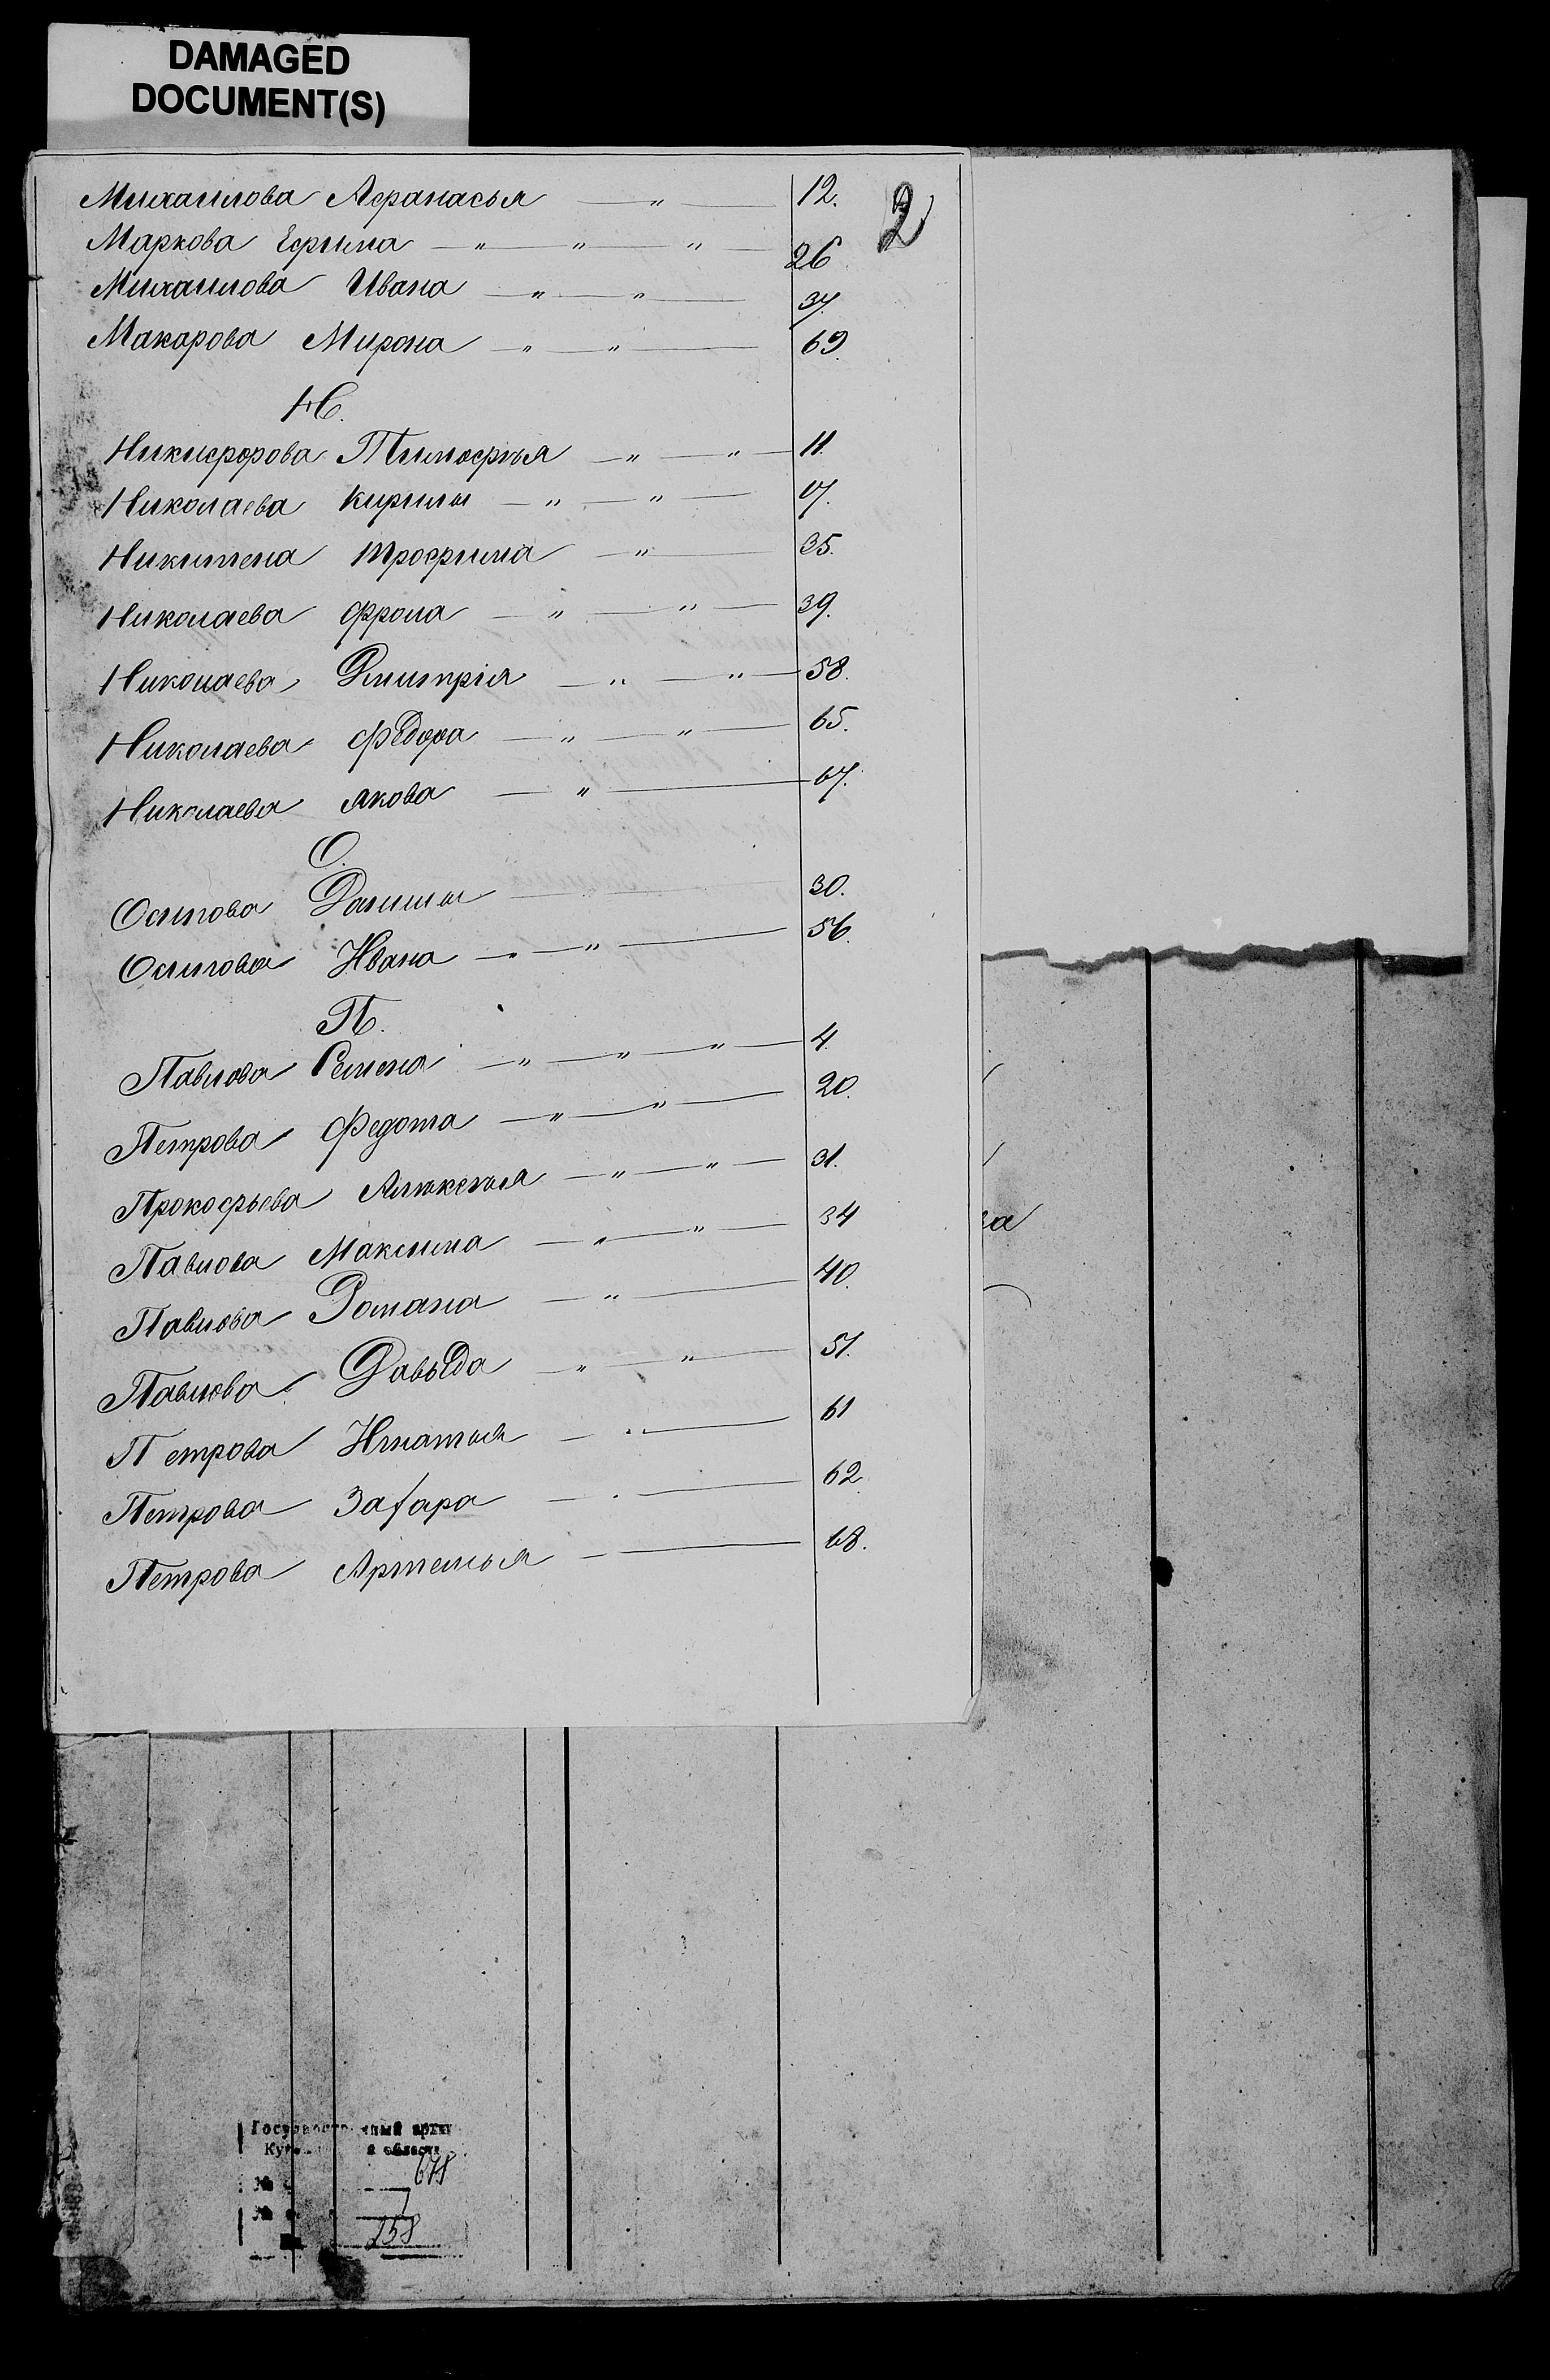 DAMAGED
DOCUMENT(S)
2
Михаилова Афанасья — " — 12.
Маркова Ефима — " — " — " — 26
Михаилова Ивана — " — " — 37.
Макарова Мирона — " — " — 69.
Н.
Никифорова Тимофья — " — " — 11.
Николаева Кирилы — " — " — 17.
Никитена Трофима — " — 35.
Николаева Фрола — " — " — 39.
Николаева Дмитрія — " — " — 58.
Николаева Федора — " — " — 65.
Николаева Якова — " — 67.
О.
Осипова Данилы — 30.
Осипова Ивана — " — " — 56.
П.
Павлова Семена — " — " — " — 4.
Петрова Федота — " — " — 20.
Прокофьева — " — " — 31.
Павлова Максима — " — " — 34
Павлова Романа — " — 40.
Павлова Давыда — " — " — 51.
Петрова Игнатья — " — 61
Петрова Захара — " — 62.
Петрова Артемья — 68.
ва
архив
области
678
1
258